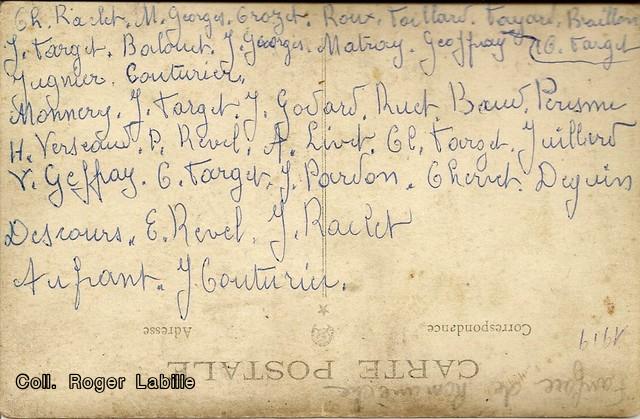 Ch. Raclet, M. Georges, Crozet, Roux, Taillard, Tayard, Braillon
J. Target, Balouet, J. Georges, Matray, Geoffray, G. Target
Jugnier, Couturier,
Monnery, J. Target, J. Godard, Ruet, Baud, Perisme
H. Verseaud, P. Revel, A. Livet, Cl. Target, Juillerd
V. Geffray, C. Target, J. Pardon, Chervet, Deguin
Descours, E. Revel, J. Raclet
Aufrant, J. Couturier.
Correspondance
Adresse
CARTE POSTALE
1919
Fanfare de Romanèche
Coll. Roger Labille